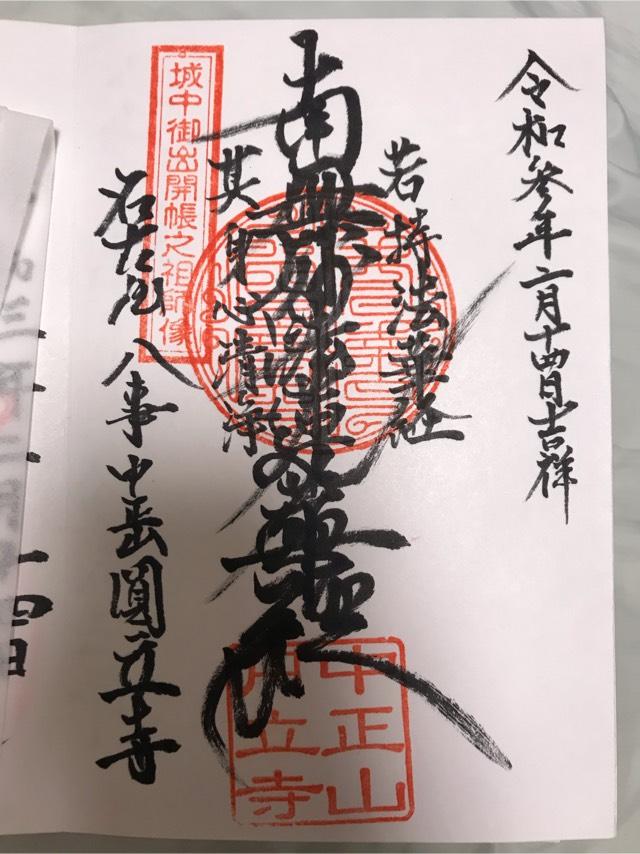 令和参年二月十四日吉祥
若持法華経
南無妙法蓮華経
其身心清浄
城中御出開帳之祖師像
名古屋八事中岳圓立寺
中正山
円立寺
四日